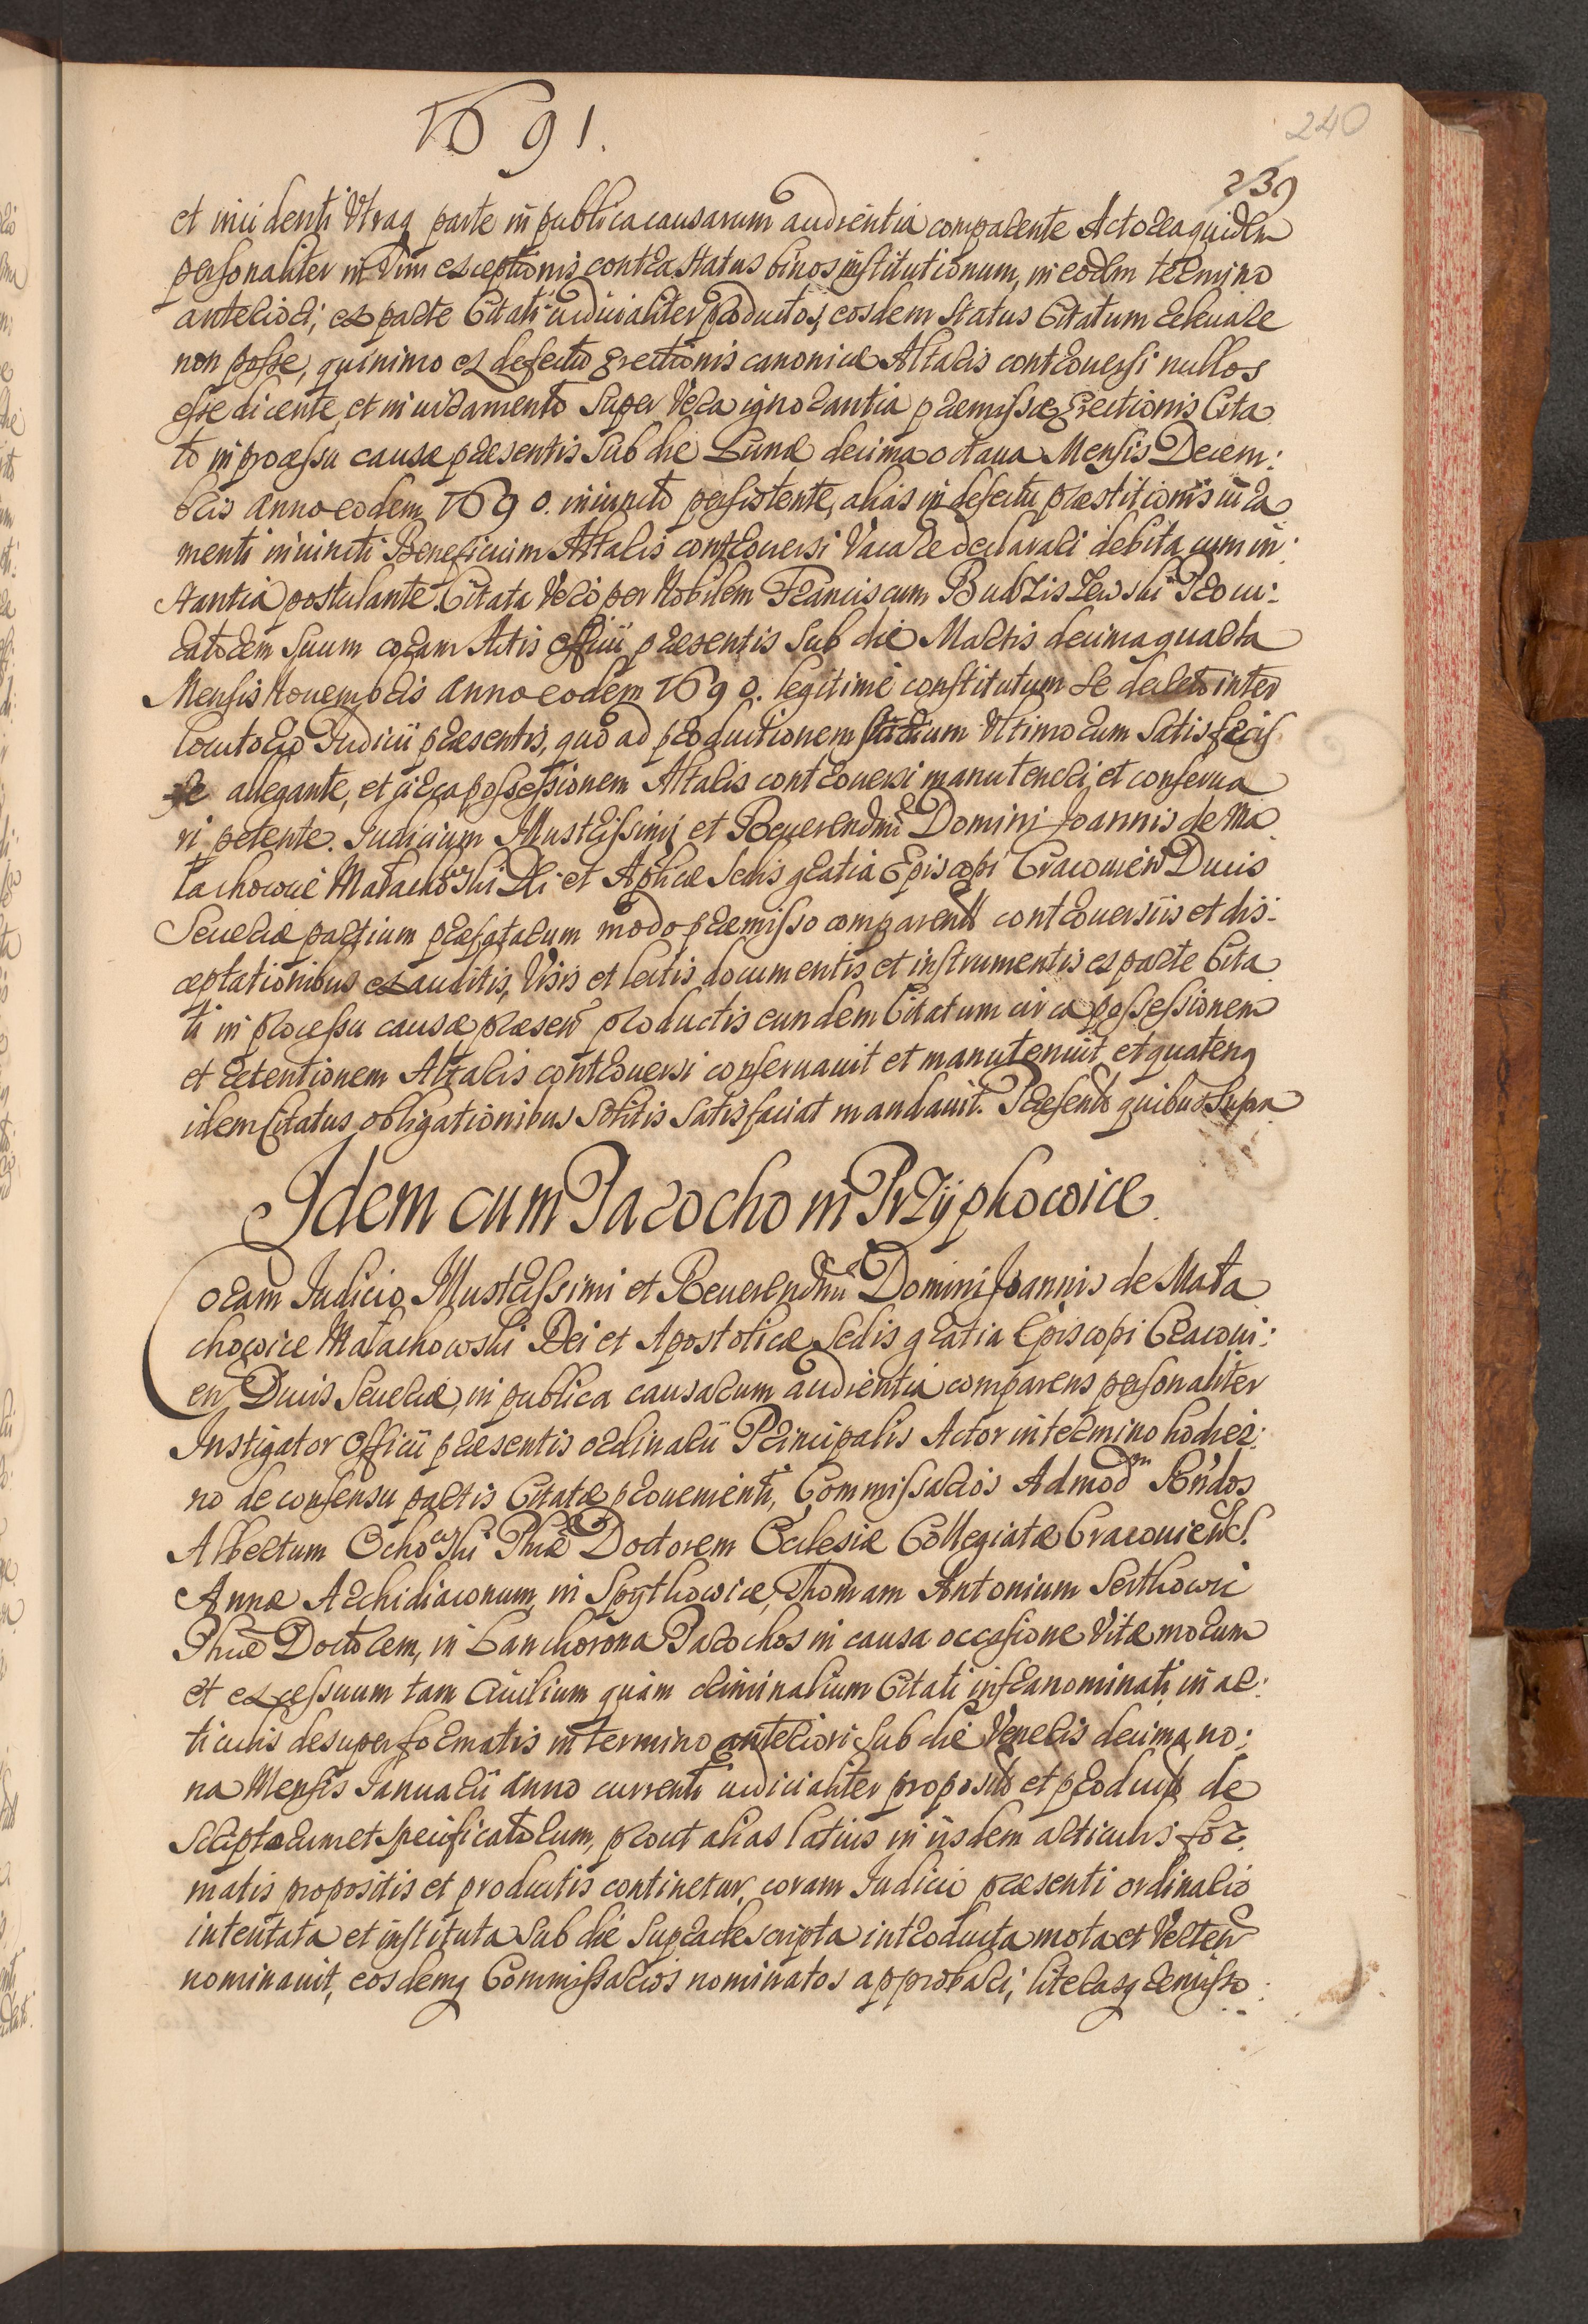 1691.
240
239
et incidenti Utraq parte in publica causarum audientia comparente Actorea quidem
personaliter in Vim exceptionis contra Status binos institutionum, in eodem termino
anteriori; ex parte Citati iudicialiter productos; eosdem Status Citatum relevare
non posse, quinimo ex defectu Erectionis canonicæ Altaris controversi nullos
esse dicente, et in iuramento Super Vera ignorantia præmissæ Erectionis Cita
to in processu causæ præsentis Sub die Lunæ decima octava Mensis Decem:
bris anno eodem 1690. iniuncto persistente, alias in defectu præstitionis iura
menti iniuncti Beneficium Altaris controversi Vacare declarari debita cum in:
stantia postulante. Citata Vero per Nobilem Franciscum Budziszewski Procu:
ratorem Suum coram Actis Officii præsentis Sub die Martis decima quarta
Mensis Novembris anno eodem 1690. legitime constitutum Se decreto inter
locutorio Iudicii præsentis, quo ad productionem iurium Ultimorum Satisfecis
se allegante, et circa possessionem Altaris controversi manuteneri, et conserva
ri petente. Iudicium Illustrissimi et Reverendmi Domini Joannis de Ma
łachowice Małachowski Di et Aplicæ Sedis gratia Episcopi Cracovien Ducis
Severiæ partium præfatarum modo præmisso comparent controversiis et dis:
ceptationibus exauditis, Visis et lectis documentis et instrumentis ex parte Cita
ti in processu causæ præsen productis eundem Citatum circa possessionem
et retentionem Altaris controversi conservavit et manutenuit, et quatenq
idem Citatus obligationibus Solitis Satisfaciat mandavit. Præsent quibus Supra
Idem cum Parocho in Przÿpkowice.
Coram Iudicio Illustrissimi et Reverendmi Domini Joannis de Mała
chowice Małachowski Dei et Apostolicæ Sedis gratia Episcopi Cracovi:
en Ducis Severiæ, in publica causarum audientia comparens personaliter
Instigator Officii præsentis ordinarii Principalis Actor in termino hodier:
no de consensu partis Citatæ provenienti, Commissarios Admodm Rndos
Albertum Ochowski Phiæ Doctorem Ecclesiæ Collegiatæ Cracovien S.
Annæ Archidiaconum, in Spÿtkowice, Thomam Antonium Serkowic
Phiæ Doctorem, in Lanckorona Parochos in causa occasione Vitæ morum
et excessuum tam Civilium quam criminalium Citati infranominati, in ar:
ticulis desuper formatis in termino anteriori Sub die Veneris decima no:
na Mensis Januarii anno currenti iudicialiter proposit et product de
scriptorum et specificatorum, prout alias latius in iisdem articulis for
matis propositis et productis continetur, coram Iudicio præsenti ordinario
intentata et instituta Sub die Supradescripta introducta mota et Verten
nominavit, eosdemq Commissarios nominatos approbari, literasq remisso: